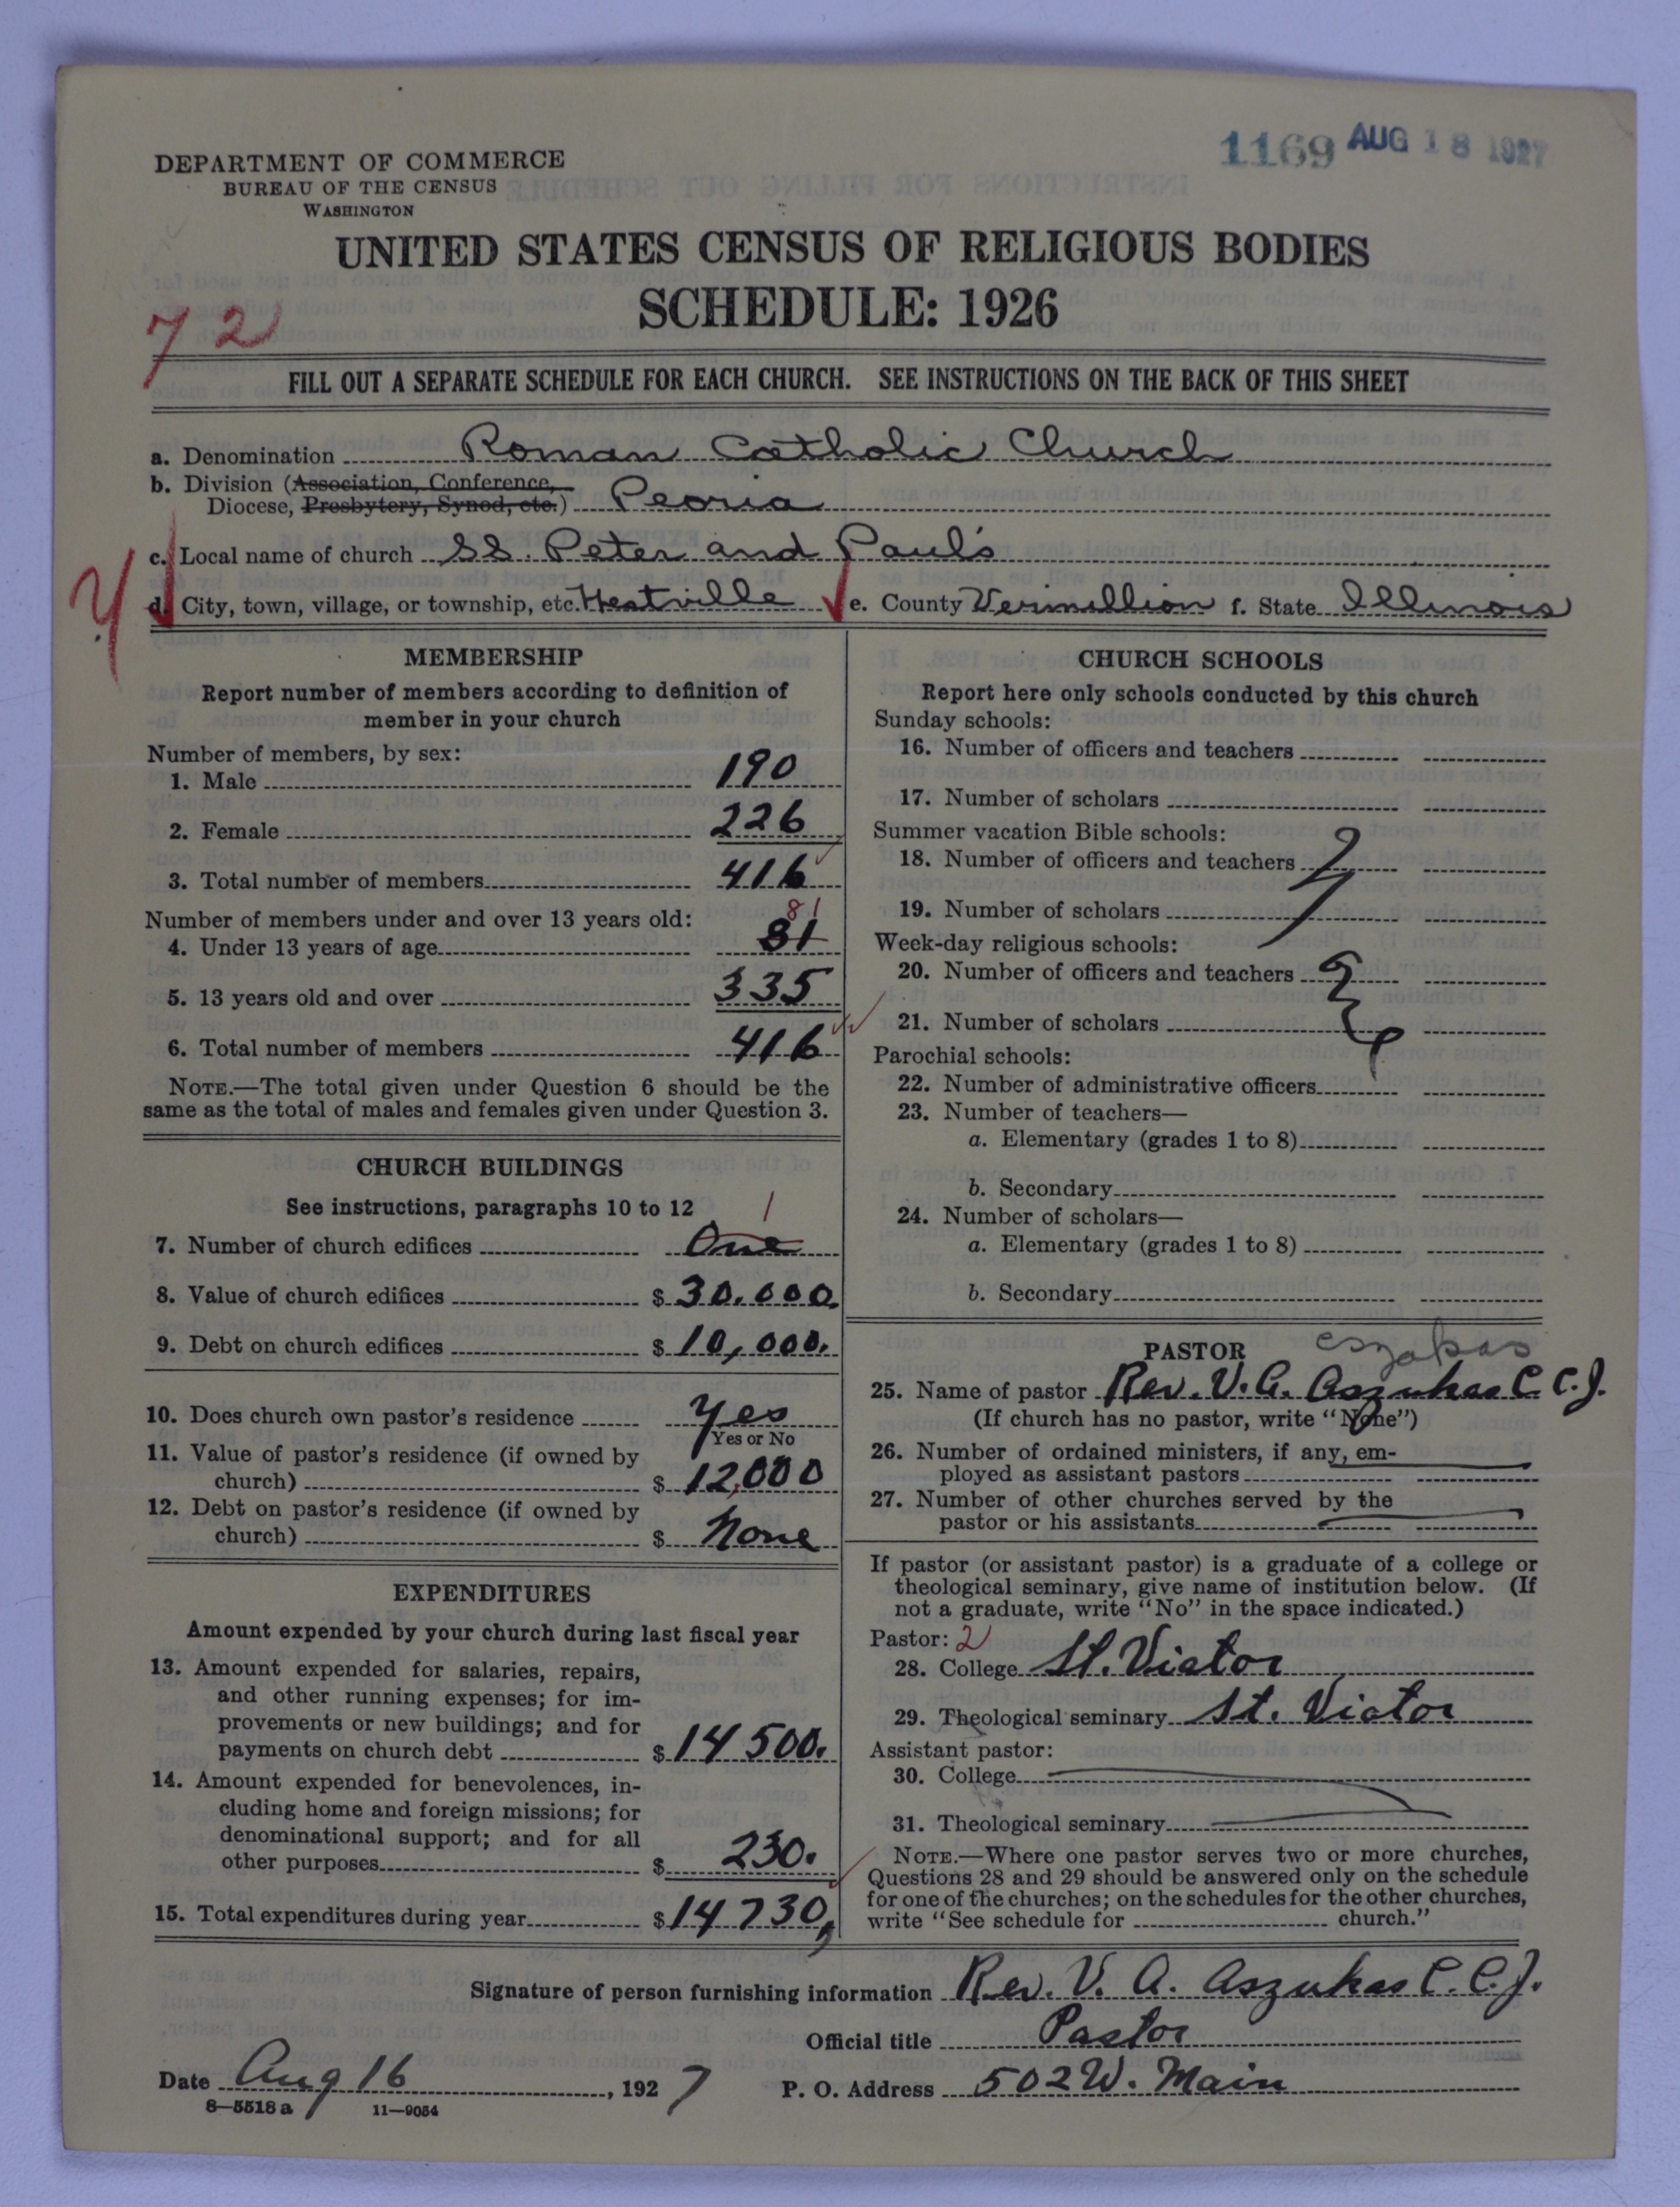 1169 AUG 18 1927
DEPARTMENT OF COMMERCE
BUREAU OF THE CENSUS
WASHINGTON
UNITED STATES CENSUS OF RELIGIOUS BODIES
SCHEDULE: 1926
72
FILL OUT A SEPARATE SCHEDULE FOR EACH CHURCH. SEE INSTRUCTIONS ON THE BACK OF THIS SHEET
a. Denomination Roman Catholic Church
b. Division (Association, Conference,
Diocese, Presbytery, Synod, etc.) Peoria
c. Local name of church SS. Peter and Paul's
d. City, town, village, or township, etc. Hestville e. County Vermillion f. State Illinois
MEMBERSHIP
Report number of members according to definition of
member in your church
Number of members, by sex:
1. Male 190
2. Female 226
3. Total number of members 416
Number of members under and over 13 years old: 81
4. Under 13 years of age 81
5. 13 years old and over 335
6. Total number of members 416
NOTE.—The total given under Question 6 should be the
same as the total of males and females given under Question 3.
CHURCH BUILDINGS
See instructions, paragraphs 10 to 12 1
7. Number of church edifices One
8. Value of church edifices $ 30.000.
9. Debt on church edifices $ 10,000.
10. Does church own pastor's residence yes
Yes or No
11. Value of pastor's residence (if owned by
church) $ 12,000
12. Debt on pastor's residence (if owned by
church) $ None
EXPENDITURES
Amount expended by your church during last fiscal year
13. Amount expended for salaries, repairs,
and other running expenses; for im-
provements or new buildings; and for
payments on church debt $ 14 500.
14. Amount expended for benevolences, in-
cluding home and foreign missions; for
denominational support; and for all
other purposes $ 230.
15. Total expenditures during year $ 14 730,
CHURCH SCHOOLS
Report here only schools conducted by this church
Sunday schools:
16. Number of officers and teachers
17. Number of scholars
Summer vacation Bible schools:
18. Number of officers and teachers
19. Number of scholars
Week-day religious schools:
20. Number of officers and teachers
21. Number of scholars
Parochial schools:
22. Number of administrative officers
23. Number of teachers—
a. Elementary (grades 1 to 8)
b. Secondary
24. Number of scholars—
a. Elementary (grades 1 to 8)
b. Secondary
PASTOR
25. Name of pastor Rev. V. A. Aszukas C. C. J.
(If church has no pastor, write "None")
26. Number of ordained ministers, if any, em-
ployed as assistant pastors
27. Number of other churches served by the
pastor or his assistants
If pastor (or assistant pastor) is a graduate of a college or
theological seminary, give name of institution below. (If
not a graduate, write "No" in the space indicated.)
Pastor: 2
28. College St. Viator
29. Theological seminary St. Viator
Assistant pastor:
30. College
31. Theological seminary
NOTE.—Where one pastor serves two or more churches,
Questions 28 and 29 should be answered only on the schedule
for one of the churches; on the schedules for the other churches,
write "See schedule for church."
Signature of person furnishing information Rev. V. A. Aszukas C. C. J.
Official title Pastor
Date Aug 16, 1927 P. O. Address 502 W. Main
8—5518 a 11—9054